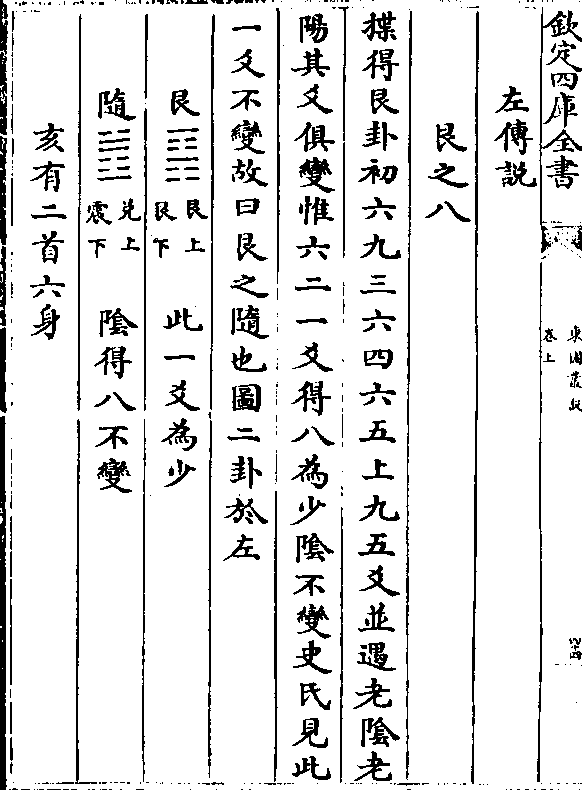 欽定四庫全書
東園叢說
卷上
左傳説
艮之八
揲得艮卦初六九三六四六五上九五爻並遇老陰老
陽其爻俱變惟六二一爻得八為少陰不變史氏見此
一爻不變故曰艮之隨也圖二卦於左
艮䷳艮上艮下 此一爻為少
隨䷐兌上震下 陰得八不變
亥有二首六身